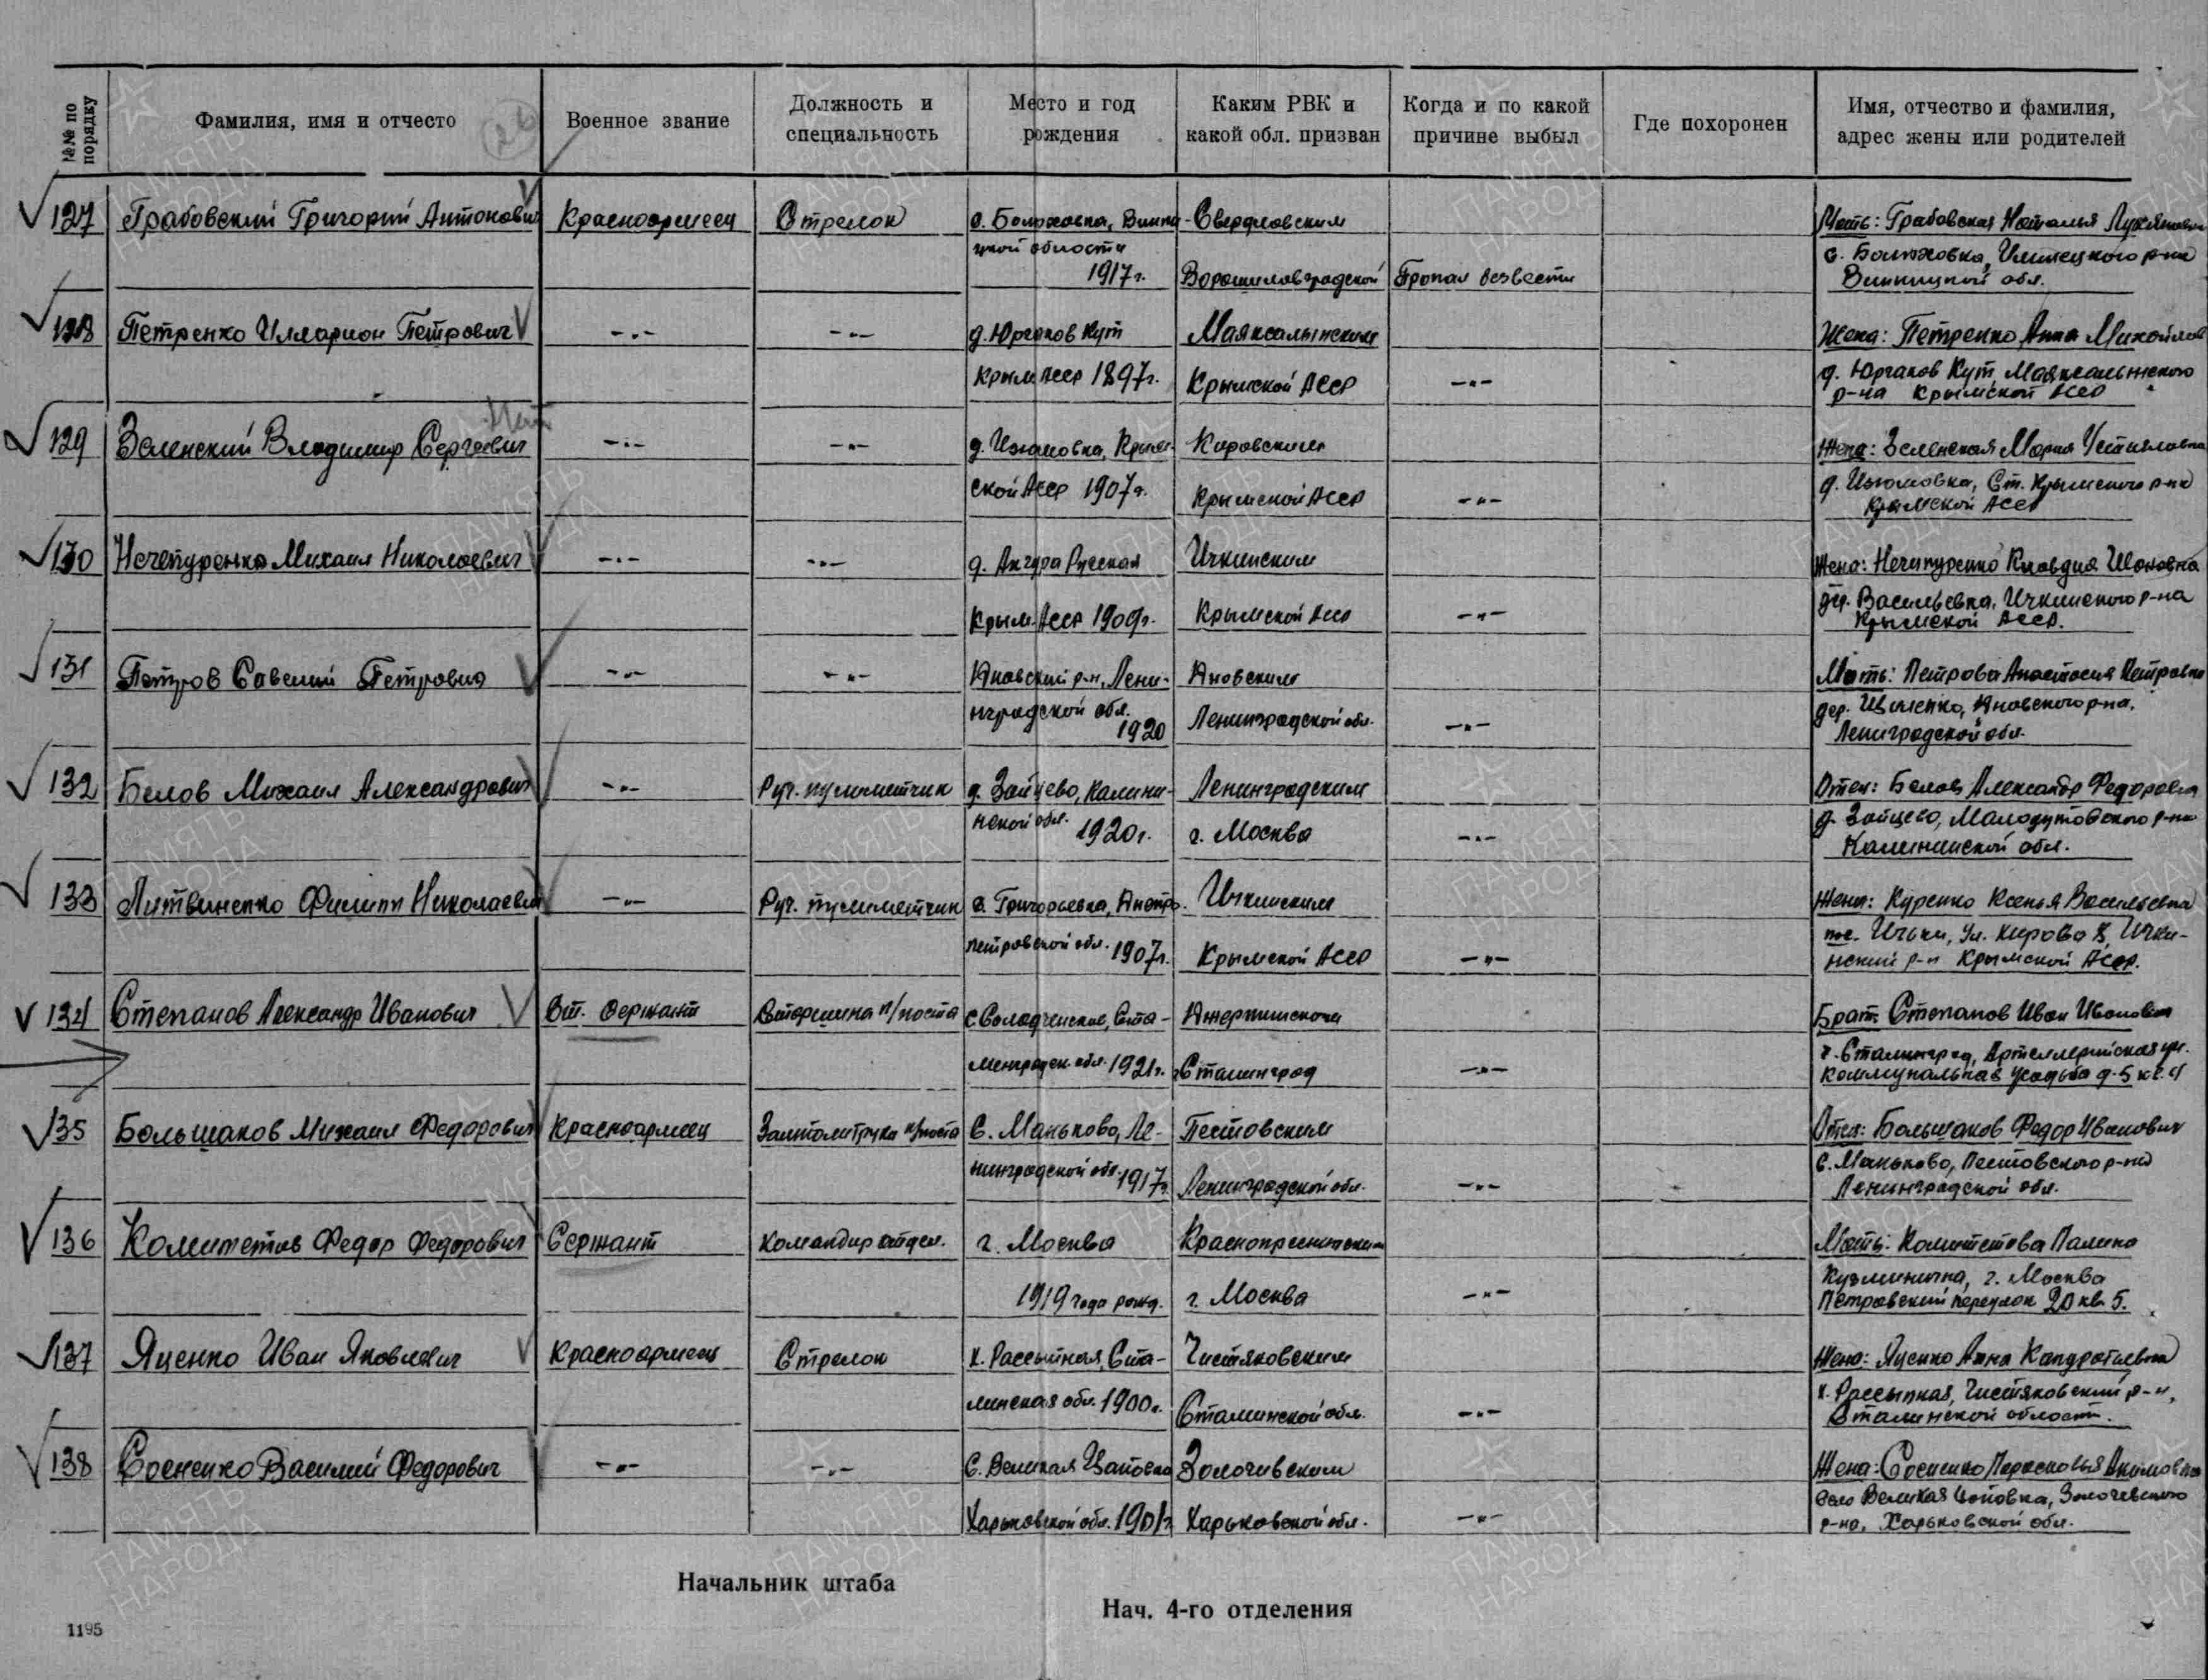 №№ по порядку
Фамилия, имя и отчесто
Военное звание
Должность и специальность
Место и год рождения
Каким РВК и какой обл. призван
Когда и по какой причине выбыл
Где похоронен
Имя, отчество и фамилия, адрес жены или родителей
127 Грабовский Григорий Антонович Красноармеец Стрелок Свердловским Мать: Грабовская Наталья
цкой области
1917 г. Ворошиловградской Пропал безвести Винницкой обл.
128 Петренко Илларион Петрович -"- -"- д. Юргаков Кут Маяксалынским Жена: Петренко Анна
Крым АССР 1897 г. Крымской АССР -"- д. Юргаков Кут Маяксалынского
р-на Крымской АССР
129 Зеленский Владимир Сергеевич -"- -"- д. Изюмовка, Крым- Кировским Жена: Зеленская Мария
ской АССР 1907 г. Крымской АССР -"- д. Изюмовка, Ст. Крымского р-на
Крымской АССР
130 Нечепуренко Михаил Николаевич -"- -"- Ичкинским Жена: Нечепуренко Клавдия
Крым. АССР 1909 г. Крымской АССР -"- дер. Васильевка, Ичкинского р-на
Крымской АССР.
131 Петров Савелий Петрович -"- -"- Лени- Мать: Петрова Анастасия Петровна
нградской обл.
1920 Ленинградской обл. -"- Ленинградской обл.
132 Белов Михаил Александрович -"- Руч. пулеметчик д. Зайцево, Калини- Ленинградским Отец: Белов Александр Федорович
нской обл. 1920 г. г. Москва -"- д. Зайцево, Молодутовского р-на
Калининской обл.
133 Литвиненко Филипп Николаевич -"- Руч. пулеметчик с. Григорьевка, Днепро- Ичкинским Жена: Куренко Ксенья Васильевна
петровской обл. 1907 г. Крымской АССР -"- Ички, ул. Кирова 8, Ички-
нский р-н Крымской АССР.
134 Степанов Александр Иванович Ст. сержант Старшина п/поста Ста- Брат: Степанов Иван Иванович
линградск. обл. 1921 г. г. Сталинград -"- г. Сталинград, Артиллерийская ул.
Коммунальная усадьба д. 5 кв. 4
135 Большаков Михаил Федорович Красноармеец Замполитрука п/поста С. Маньково, Ле- Пестовским Отец: Большаков Федор Иванович
нинградской обл. 1917 г. Ленинградской обл. -"- С. Маньково, Пестовского р-на
Ленинградской обл.
136 Комитетов Федор Федорович Сержант Командир отдел. г. Москва Краснопресненским Мать: Комитетова
1919 года рожд. г. Москва -"- Кузминична, г. Москва
Петровский переулок 20 кв 5.
137 Яценко Иван Яковлевич Красноармеец Стрелок х. Рассыпная, Ста- Чистяковским Жена: Яценко Анна Кандратьевна
линская обл. 1900 г. Сталинской обл. -"- х. Рассыпная, Чистяковский р-н,
Сталинской област.
138 Сосненко Василий Федорович -"- -"- С. Великая Цаповка Золочевским Жена: Сосненко Парасковья Акимовна
Харьковской обл. 1901 г. Харьковской обл. -"- Село Великая Цоповка, Золочевского
р-на, Харьковской обл.
Начальник штаба
Нач. 4-го отделения
1195
ПАМЯТЬ НАРОДА